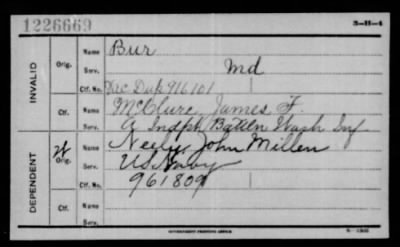 1226669
3-H-4
INVALID
Orig.
Name
Bur
Serv.
Md
Ctf. No.
Dup 916101
Ctf.
Name
McClure, James F.
Serv.
Battln Wash Inf
DEPENDENT
Orig.
Name
Neely, John Millen
Serv.
US Navy
Ctf. No.
961809
Ctf.
Name
Serv.
GOVERNMENT PRINTING OFFICE